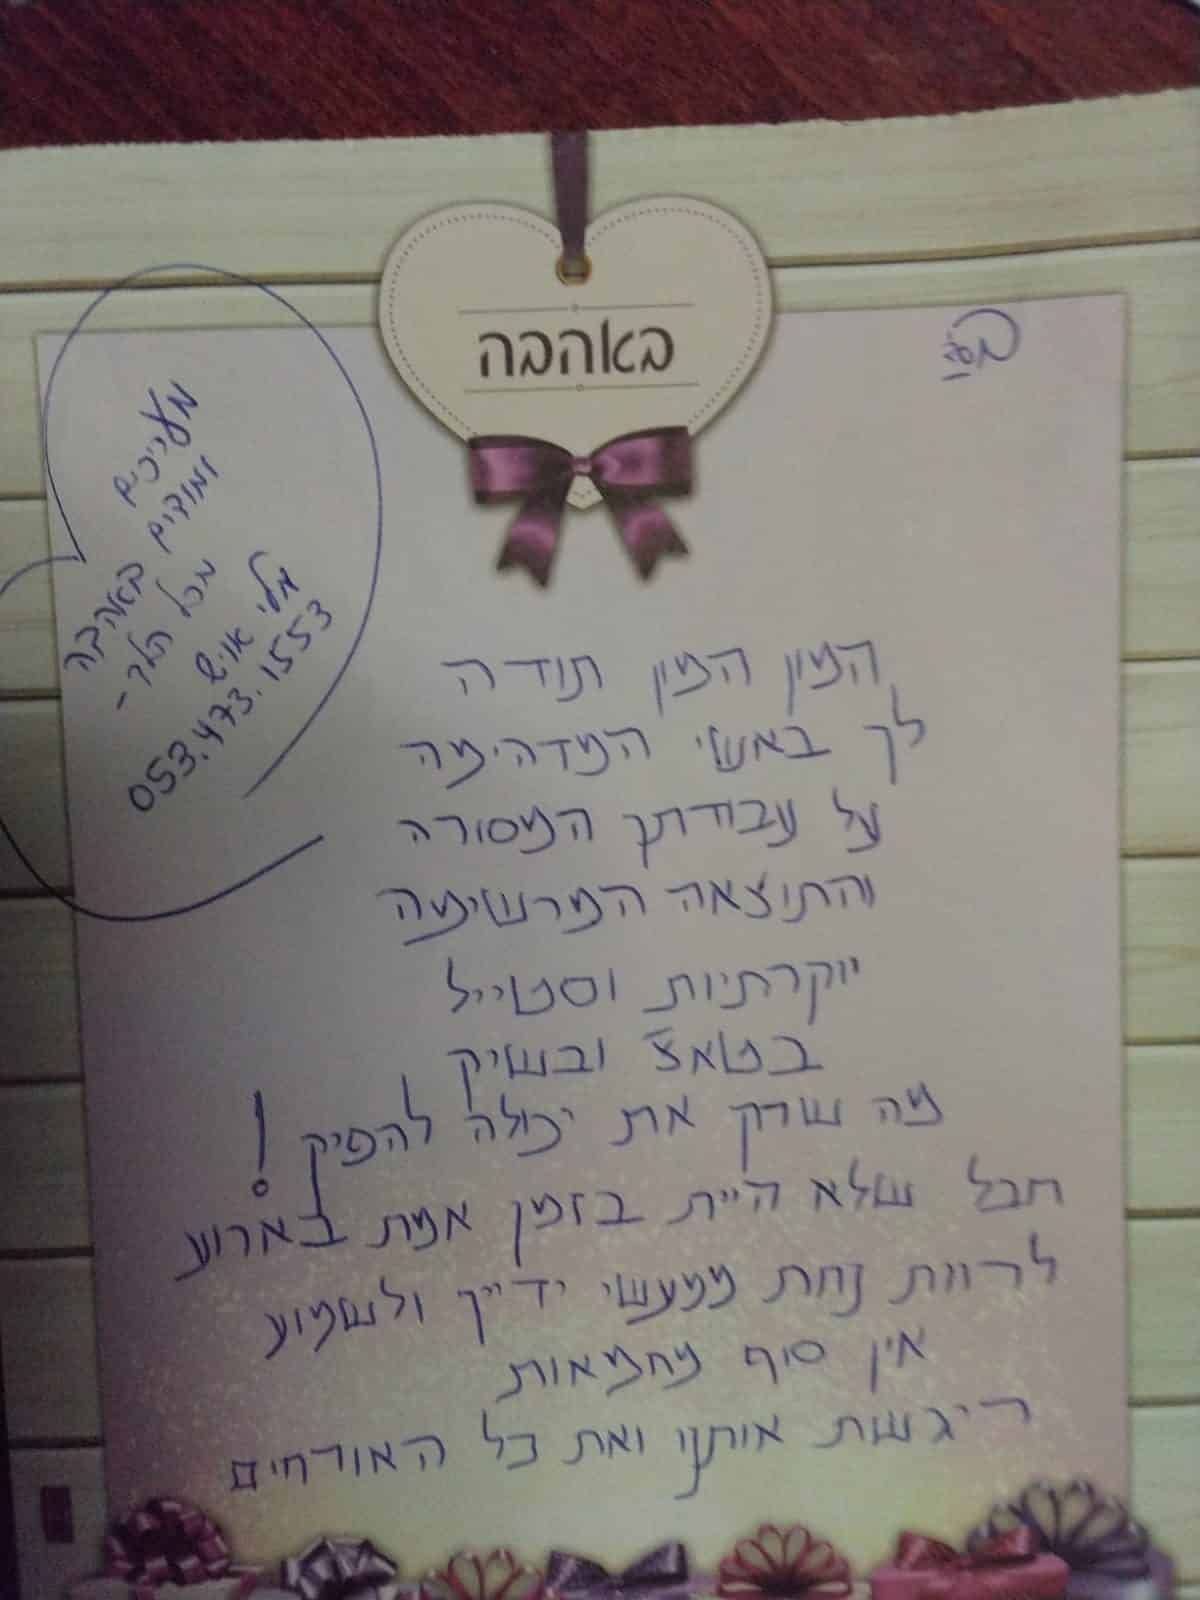 בס"ד
באהבה
המון המון תודה
לך באשי המדהימה
על עבודתך המסורה
והתוצאה המרשימה
יוקרתיות וסטייל
בטאצ' ובשיק
מה שרק את יכולה להפיק!
חבל שלא היית בזמן אמת בארוע
לרוות נחת ממעשי ידייך ולשמוע
אין סוף מחמאות
ריגשת אותנו ואת כל האורחים
מעריכים
ומודים באהבה
מכל הלב -
אלי אויש
053.473.1553